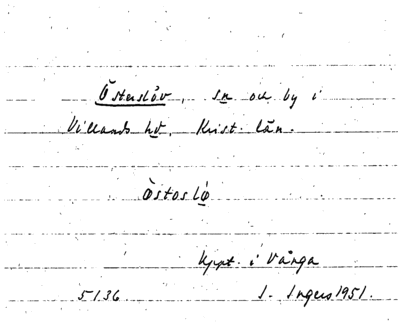 Österslöv, sn och by i
Villands hd, Krist. län.
Östosló
Uppt. i Vånga
5136 I. Ingers 1951.